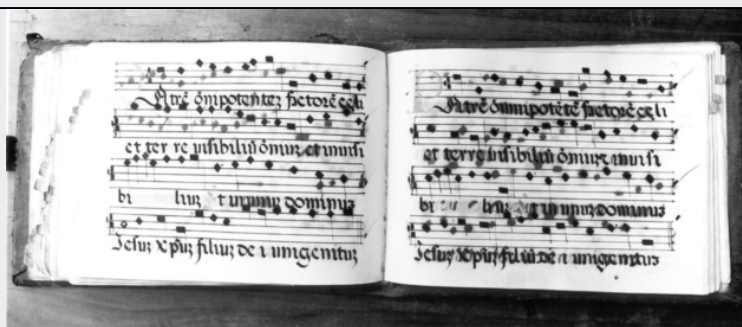 Atrē ōmpotentez factorē celi
et ter re visibiliū ōmiuz et invisi
bi liuz t unum dominuz
Jesuz xp̄m filiuz de i unigenituz
Atrē ōmnipotētē factorē celi
et terre visibiliū ōmiuz invisi
bi liuz t in unuz dominuz
Jesuz xp̄m filiū dē i unigenituz